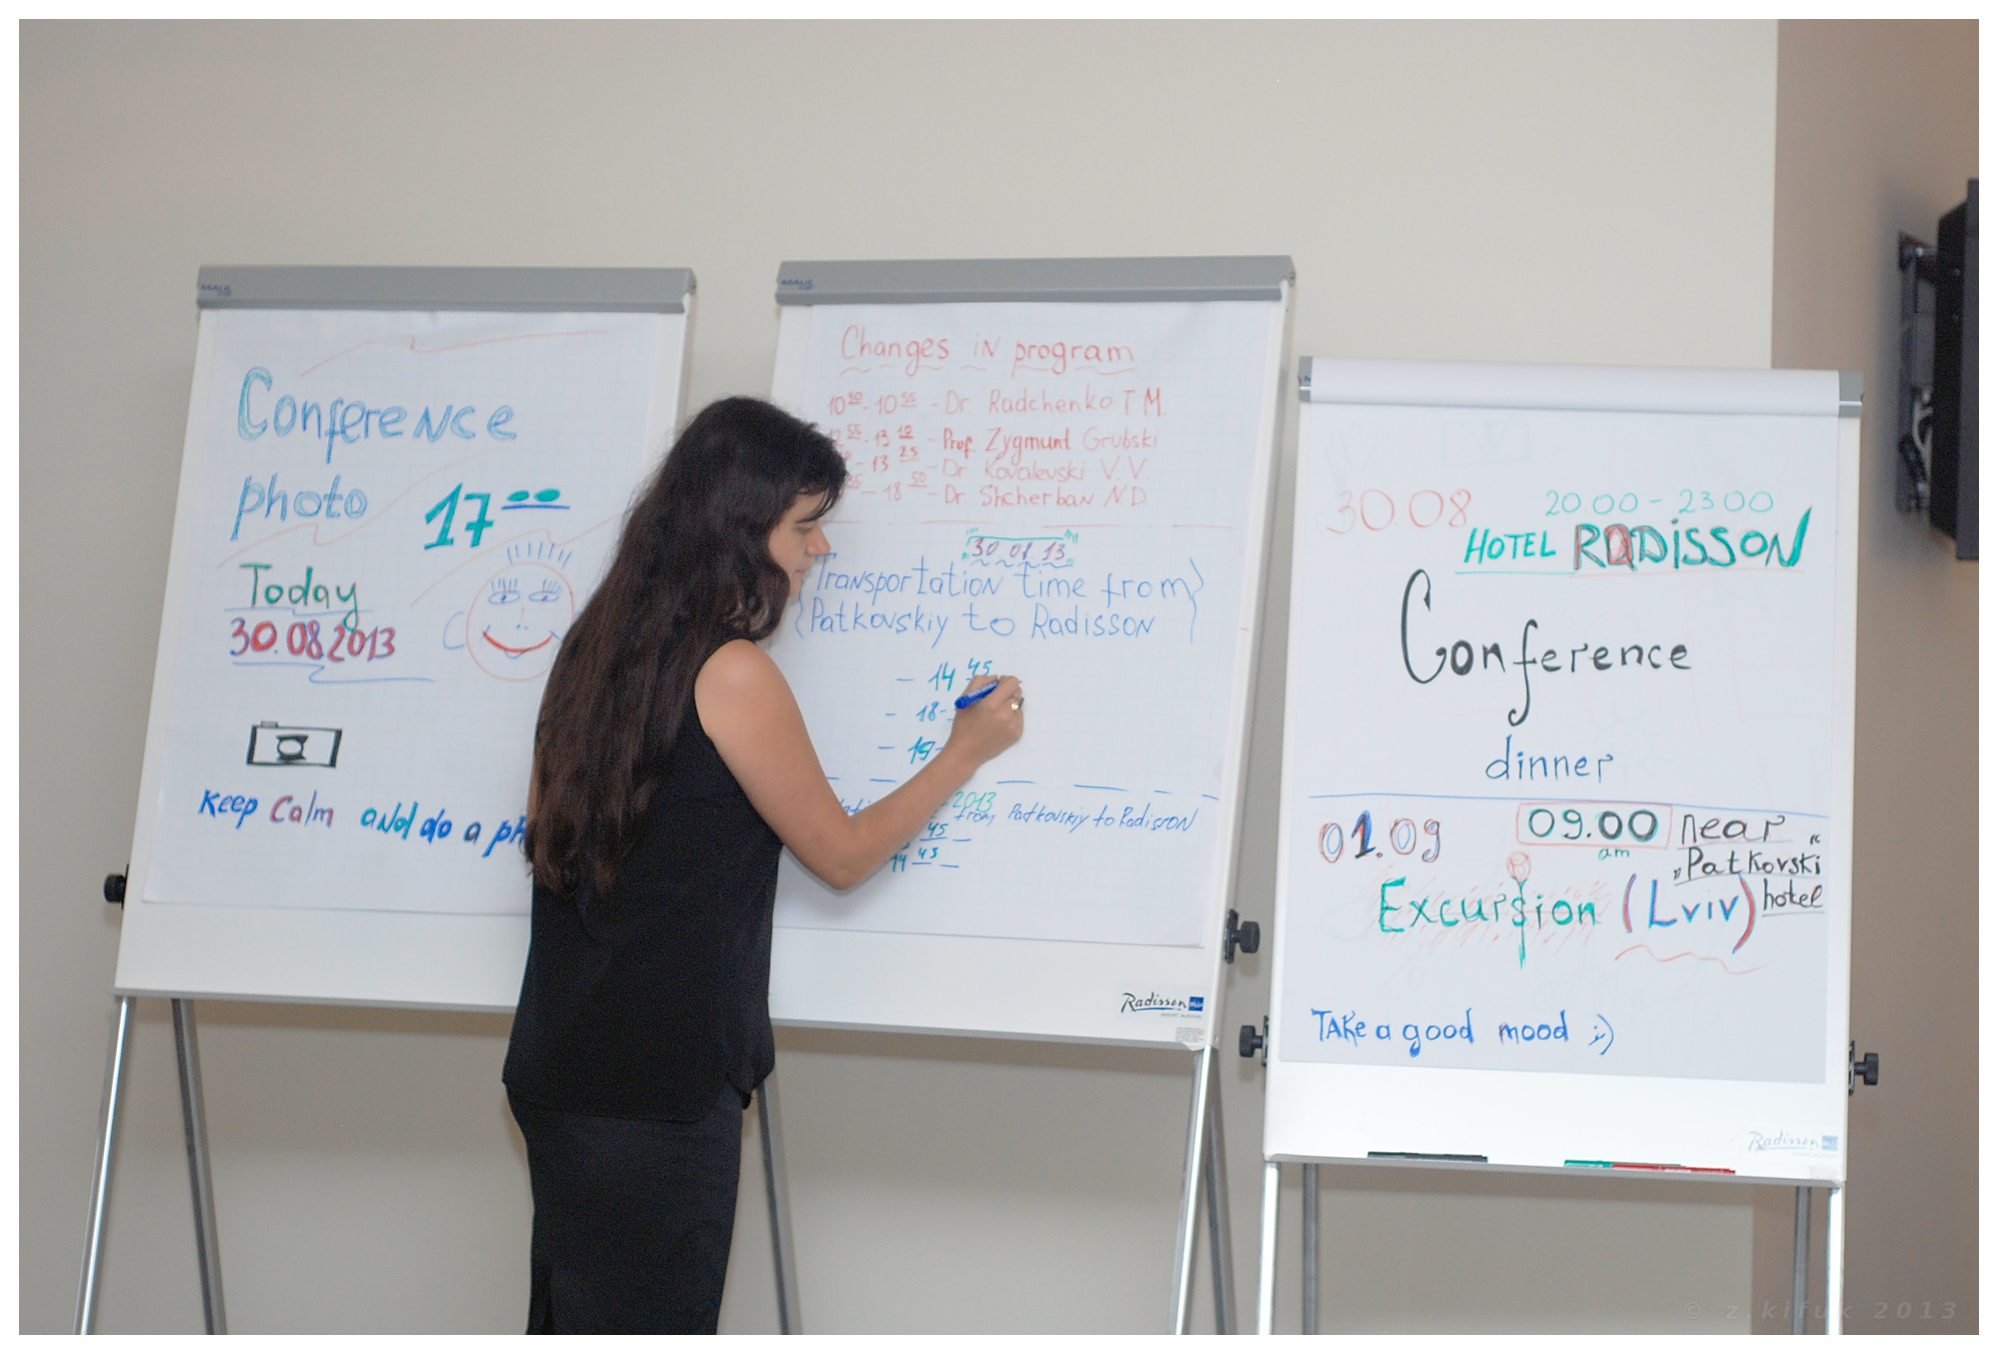 MAUL
Conference
photo 17 00
Today
30.08 2013
Keep Calm and do a
MAUL
Changes in program
10 30 - 10 55 - Dr. Radchenko T.M.
55 - 13 10 - Prof. Zygmunt Grubski
- 13 25 - Dr. Kovalevski V.V.
- 18 50 - Dr. Shcherban N.D.
Transportation time from
Patkovskiy to Radisson
- 14 45
- 18
- 19
2013
from Patkovskiy to Radisson
45 -
14 45 -
Radisson
30 08 20.00 - 23 00
HOTEL RADISSON
Conference
dinner
01.09 09.00 near
am
"Patkovski"
hotel
Excursion (Lviv)
Take a good mood ;)
Radisson
© z.kifuk 2013